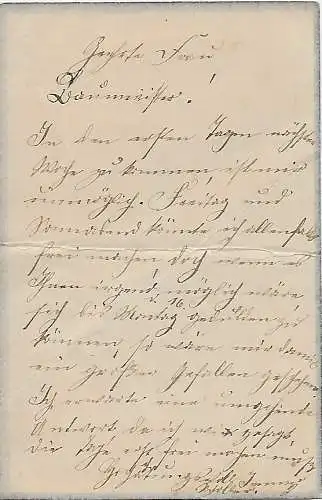 Geehrte Frau
Baumeister!
In den ersten Tagen nächster
Woche zu kommen, ist mir
unmöglich. Freitag und
Sonnabend könnte ich allenfalls
frei machen doch wenn es
Ihnen irgend möglich wäre
sich bis Montag d. 16 gedulden zu
können, so wäre mir damit
ein großer Gefallen geschehen.
Ich erwarte eine umgehende
Antwort da ich wie gesagt,
die Tage erst frei machen muß
Achtungsvoll Jenny